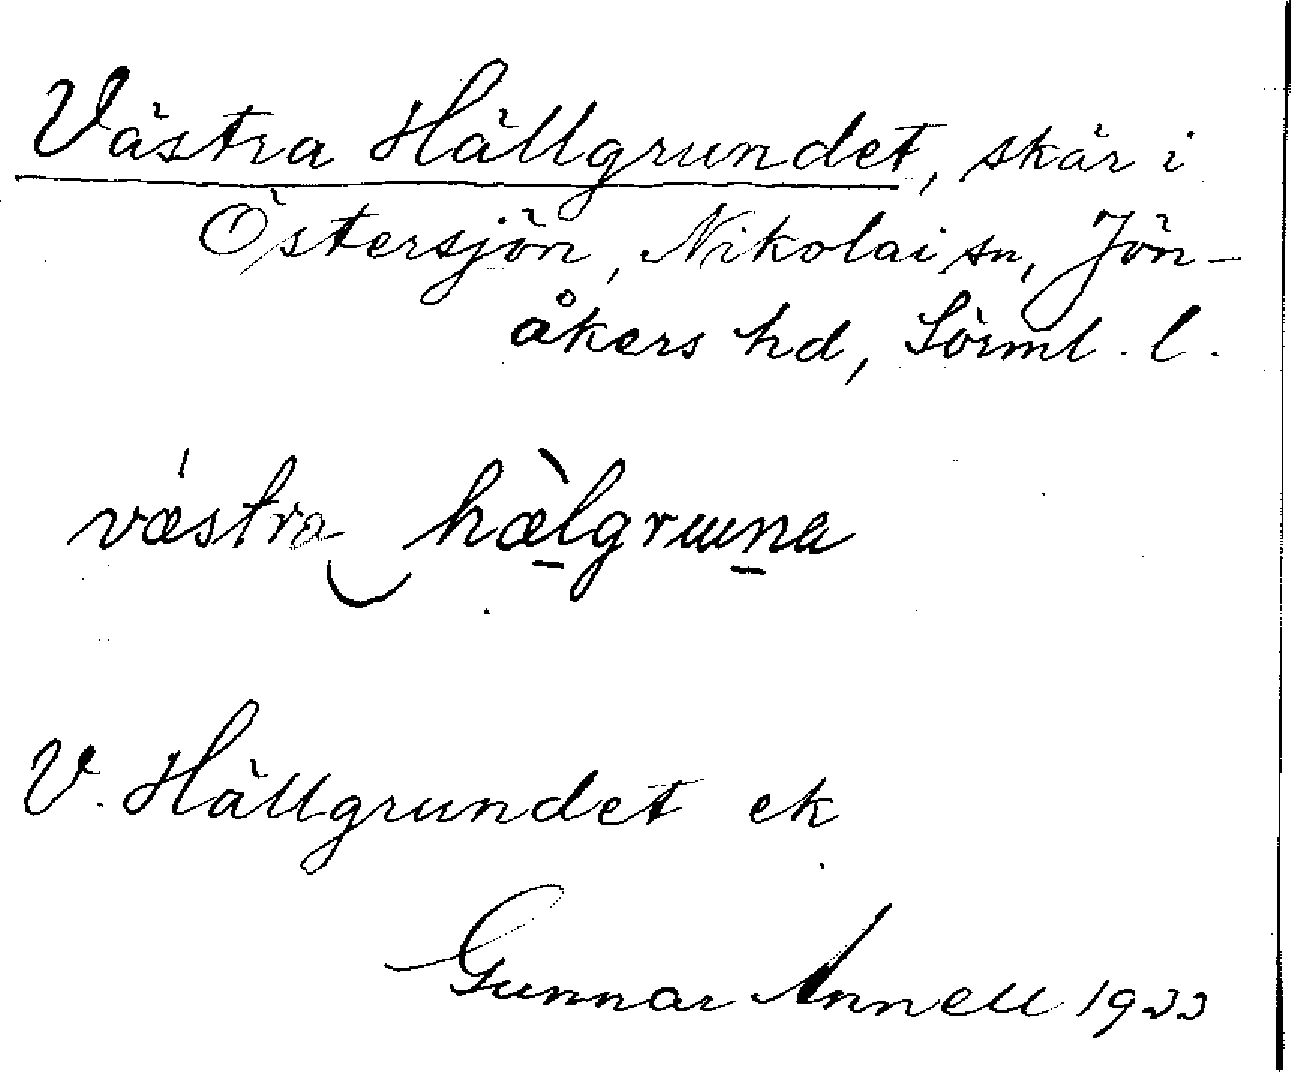 Västra Hällgrundet, skär i
Östersjön, Nikolai sn, Jön-
åkers hd, Sörml. l.
vǽstra‿hæ̀lgruna
V. Hällgrundet ek
Gunnar Annell 1933